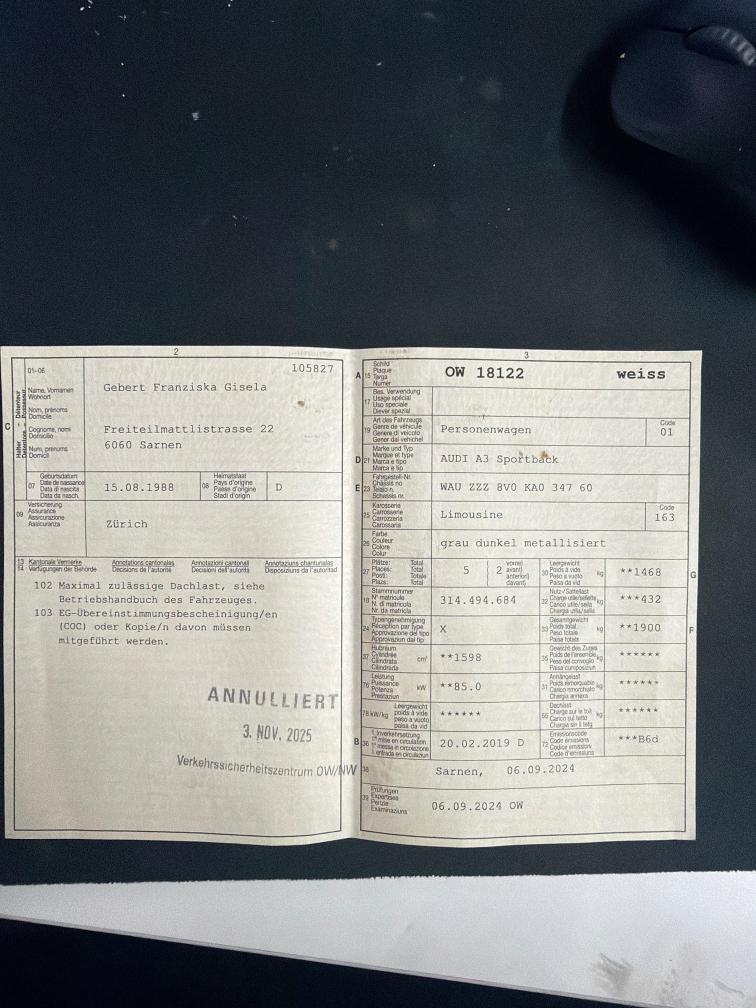 2
01-06
105827
C
Halter - Détenteur
Name, Vornamen
Wohnort
Nom, prénoms
Domicile
Cognome, nomi
Domicilio
Num, prenums
Domicil
Gebert Franziska Gisela
Freiteilmattlistrasse 22
6060 Sarnen
07
Geburtsdatum
Date de naissance
Data di nascita
Data da nasch.
15.08.1988
08
Heimatstaat
Pays d'origine
Paese d'origine
Stadi d'origin
D
09
Versicherung
Assurance
Assicurazione
Assicuranza
Zürich
13
14
Kantonale Vermerke
Verfügungen der Behörde
Annotations cantonales
Décisions de l'autorité
Annotazioni cantonali
Decisioni dell'autorità
Annotaziuns chantunalas
Disposiziuns da l'autoritad
102 Maximal zulässige Dachlast, siehe
Betriebshandbuch des Fahrzeuges.
103 EG-Übereinstimmungsbescheinigung/en
(COC) oder Kopie/n davon müssen
mitgeführt werden.
ANNULLIERT
3. NOV. 2025
Verkehrssicherheitszentrum OW/NW
3
A
15
Schild
Plaque
Targa
Numer
OW 18122
weiss
17
Bes. Verwendung
Usage spécial
Uso speciale
Diever spezial
19
Art des Fahrzeugs
Genre de véhicule
Genere di veicolo
Gener dal vehichel
Personenwagen
Code
01
D
21
Marke und Typ
Marque et type
Marca e tipo
Marca e tip
AUDI A3 Sportback
E
23
Fahrgestell-Nr.
Châssis no
Telaio n.
Schassis nr.
WAU ZZZ 8V0 KA0 347 60
25
Karosserie
Carrosserie
Carrozzeria
Carossaria
Limousine
Code
163
26
Farbe
Couleur
Colore
Colur
grau dunkel metallisiert
27
Plätze: Total
Places: Total
Posti: Totale
Plazs: Total
5
2
vorne)
avant)
anteriori)
davant)
30
Leergewicht
Poids à vide
Peso a vuoto
Paisa da vid
kg
**1468
G
18
Stammnummer
N° matricule
N. di matricola
Nr. da matricla
314.494.684
32
Nutz-/Sattellast
Charge utile/sellette
Carico utile/sella
Chargia utila/sella
kg
***432
24
Typengenehmigung
Réception par type
Approvazione del tipo
Approvaziun dal tip
X
33
Gesamtgewicht
Poids total
Peso totale
Paisa totala
kg
**1900
F
37
Hubraum
Cylindrée
Cilindrata
Cilindrada
cm³
**1598
35
Gewicht des Zuges
Poids de l'ensemble
Peso del convoglio
Paisa cumposiziun
kg
******
76
Leistung
Puissance
Potenza
Prestaziun
kW
**85.0
31
Anhängelast
Poids remorquable
Carico rimorchiato
Chargia annexa
kg
******
78 kW/kg
Leergewicht
poids à vide
peso a vuoto
paisa da vid
******
55
Dachlast
Charge sur le toit
Carico sul tetto
Chargia sin il tetg
kg
******
B
36
1. Inverkehrsetzung
1re mise en circulation
1a messa in circolazione
1. entrada en circulaziun
20.02.2019 D
72
Emissionscode
Code émissions
Codice emissioni
Code d'emissiuns
***B6d
38
Sarnen, 06.09.2024
39
Prüfungen
Expertises
Perizie
Examinaziuns
06.09.2024 OW